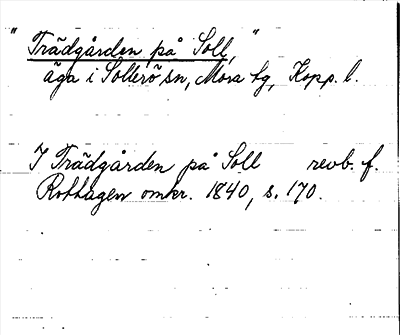 "Trädgården på Soll,"
äga i Sollerö sn, Mora tg, Kopp. l.
I Trädgården på Soll revb. f.
Rothagen omkr. 1840, s. 170.